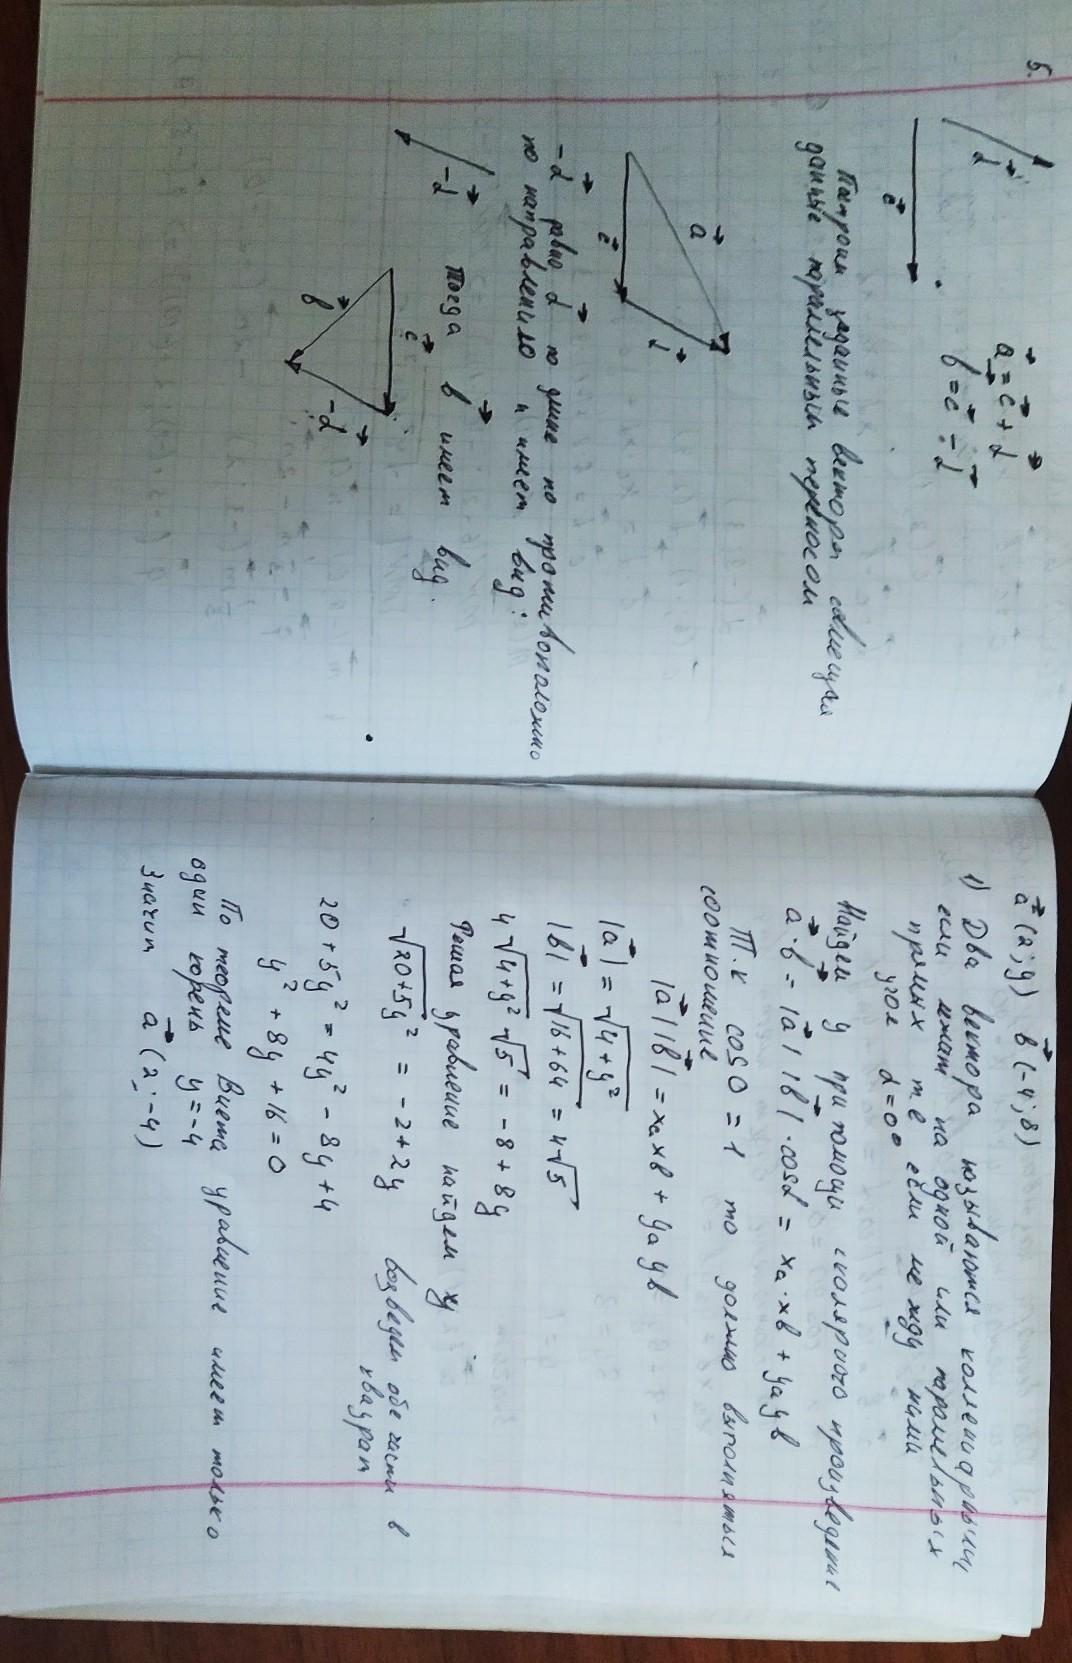 5.
d
c
a = c + d
b = c - d
Построим заданные вектора совмещая
данные параллельным переносом
a
c
d
-d равно d по длине но противоположно
по направлению и имеет вид:
-d
Тогда b имеет вид.
c
b
-d
a (2; y) b (-4; 8)
1) Два вектора называются коллениарными,
если лежат на одной или паралельных
прямых т.е если между ними
угол α=0°
Найдем y при помощи скалярного произведение
a · b = |a| |b| · cosα = xa · xb + ya yb
Т.к cos 0 = 1 то должно выполняться
соотношение
|a| |b| = xa xb + ya yb
|a| = √4+y²
|b| = √16+64 = 4√5
4√4+y² √5 = -8 + 8y
Решая уравнение найдем y
√20+5y² = -2+2y возведем обе части в
квадрат
20+5y² = 4y² - 8y + 4
y² + 8y + 16 = 0
По теореме Виета уравнение имеет только
один корень y = -4
Значит a (2; -4)